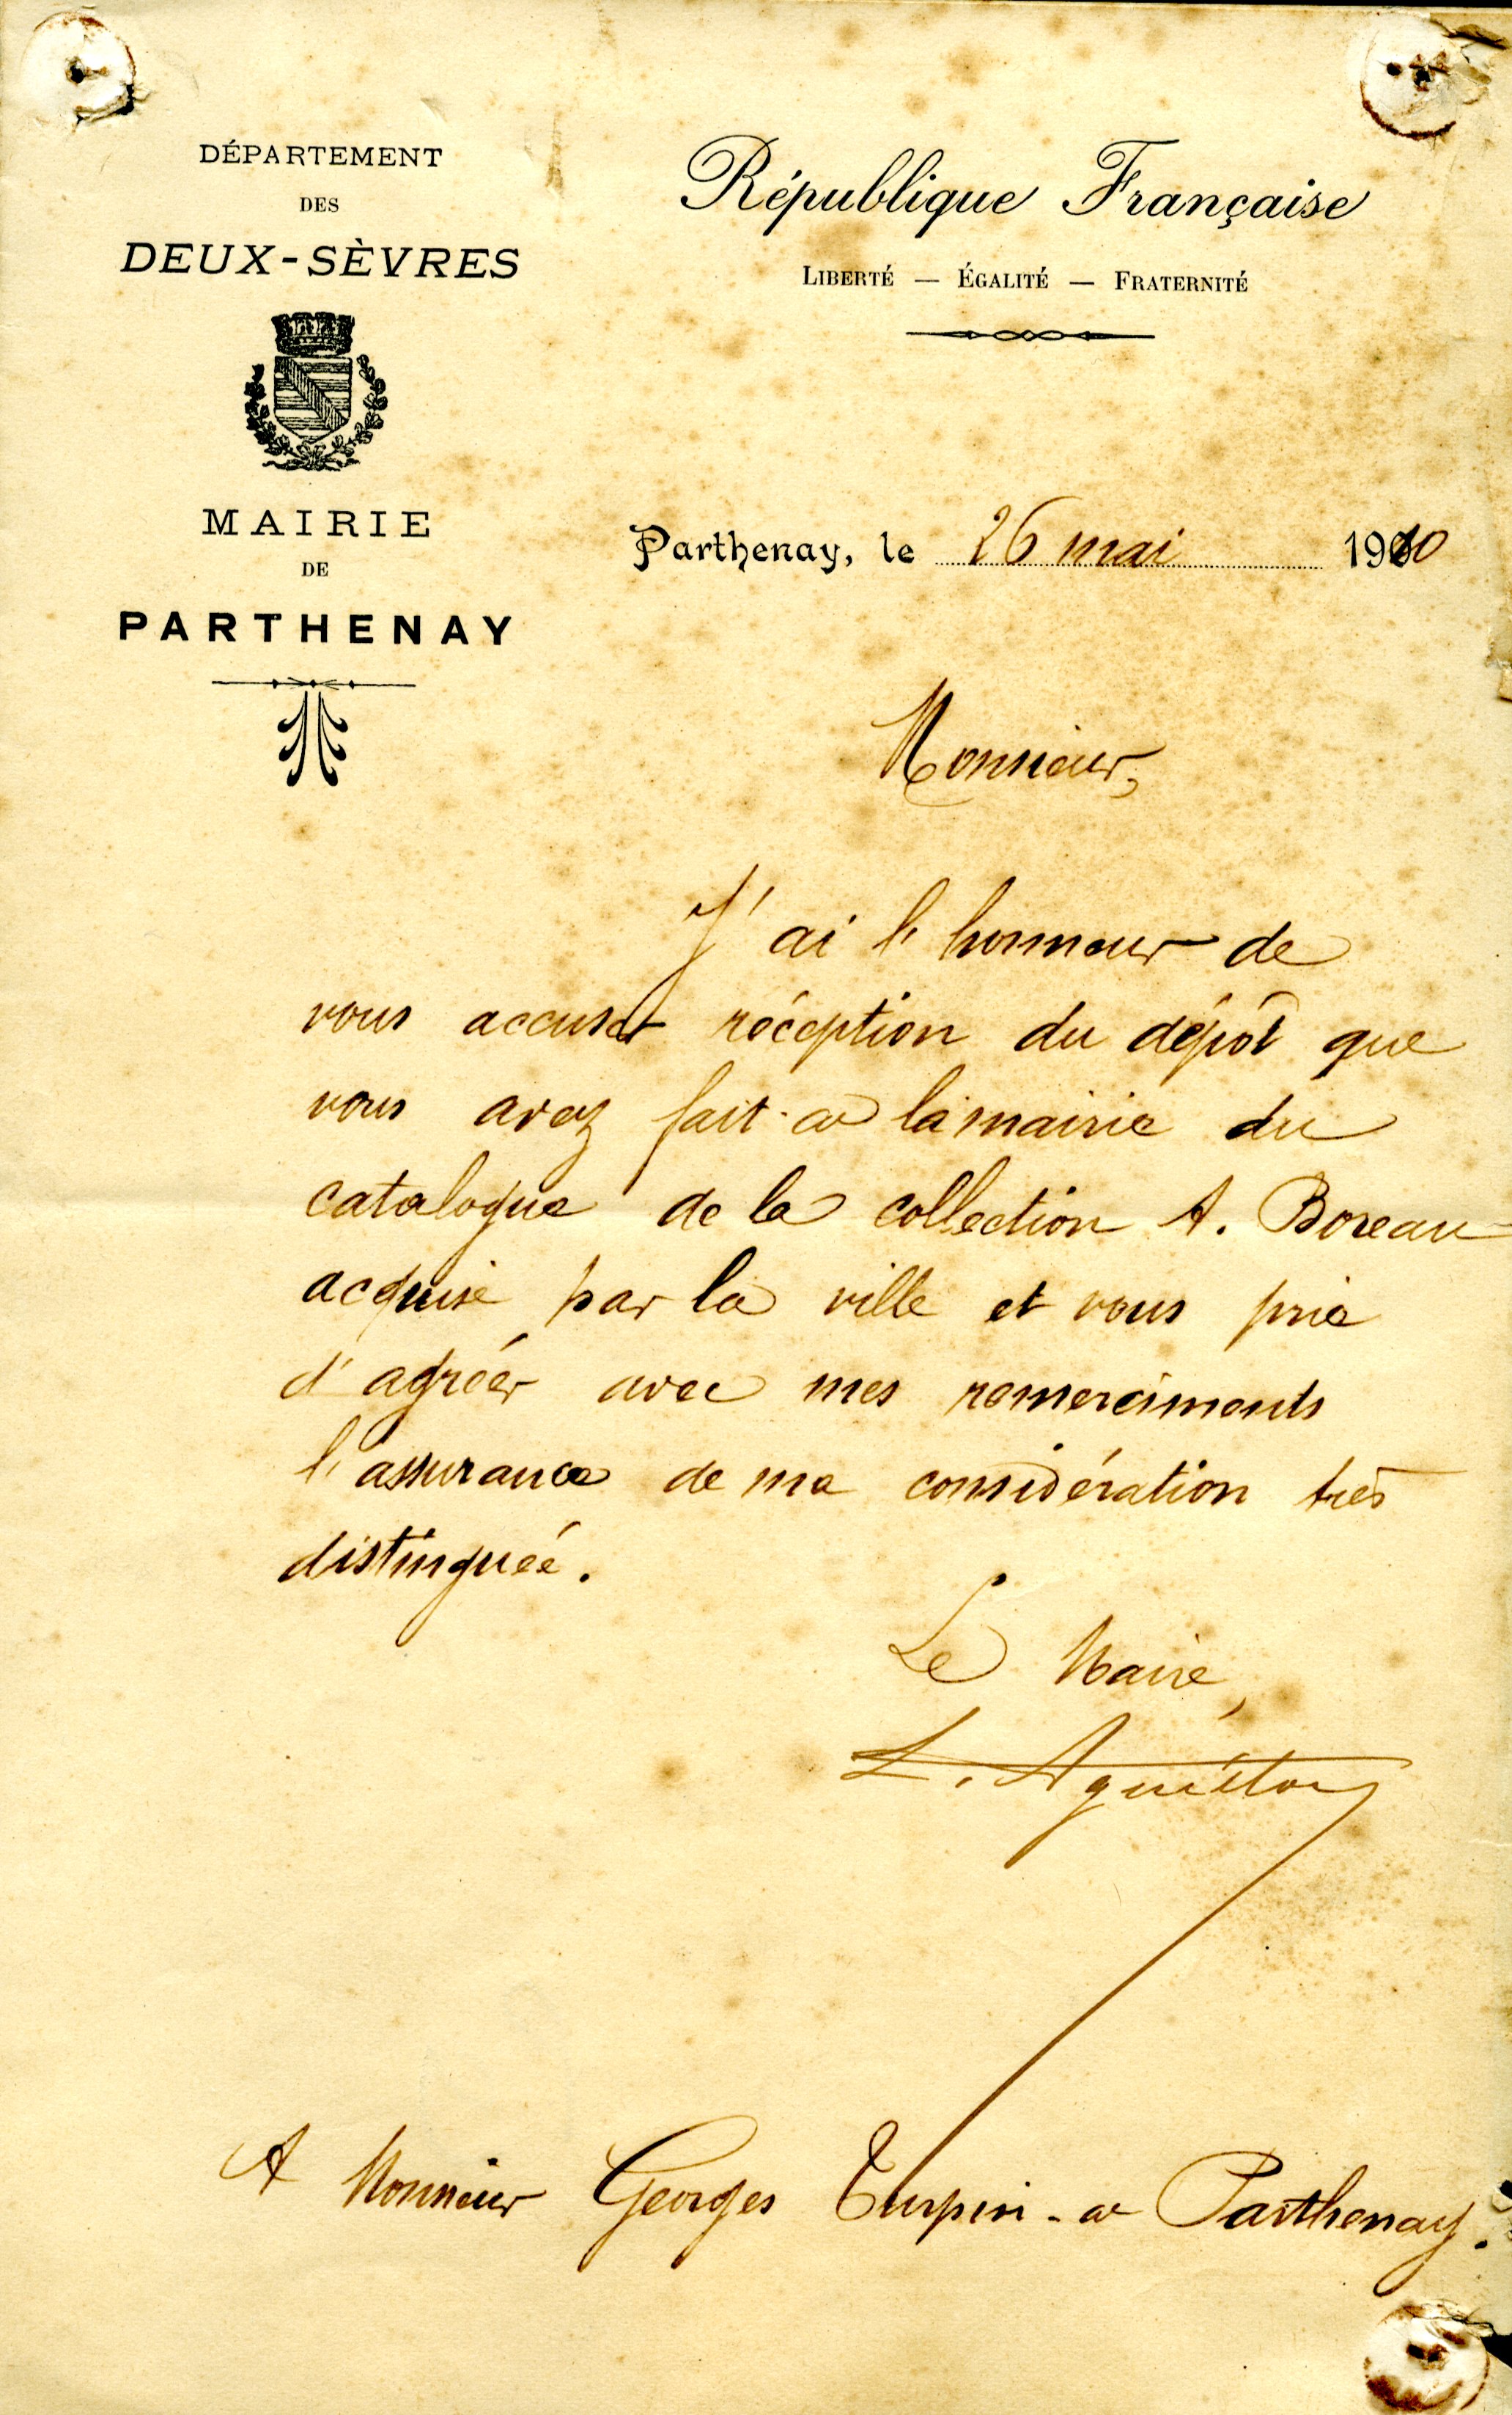 DÉPARTEMENT
DES
DEUX-SÈVRES
MAIRIE
DE
PARTHENAY
République Française
LIBERTÉ — ÉGALITÉ — FRATERNITÉ
Parthenay, le 26 mai 1910
Monsieur,
J'ai l'honneur de
vous accuser réception du dépôt que
vous avez fait à la mairie du
catalogue de la collection A. Boreau
acquise par la ville et vous prie
d'agréer avec mes remerciments
l'assurance de ma considération très
distinguée.
Le Maire,
L. Aguillon
A Monsieur Georges Turpin - à Parthenay.